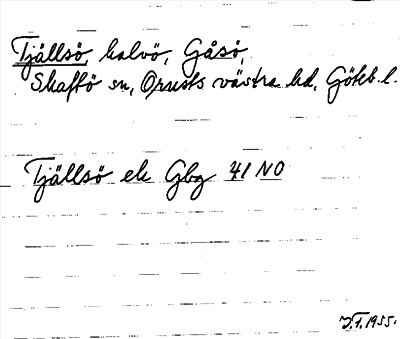 Tjällsö, halvö, Gåsö,
Skaftö sn, Orusts västra hd, Göteb. l.
Tjällsö ek Gbg 41 NO
J.F. 1955.